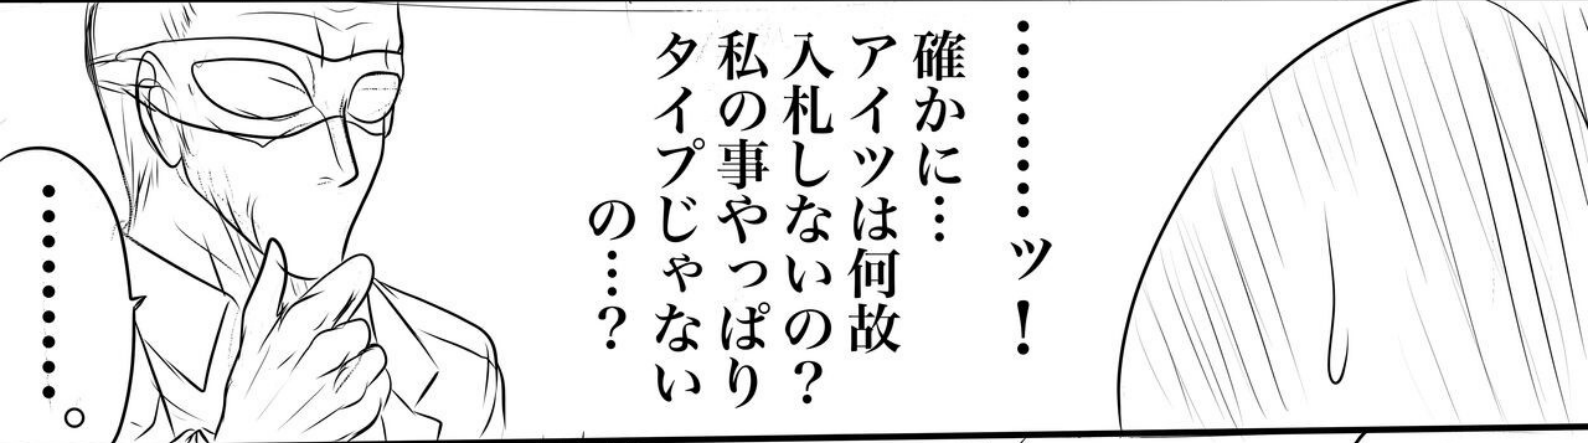 …………ッ！
確かに…
アイツは何故
入札しないの？
私の事やっぱり
タイプじゃない
の…？
………。